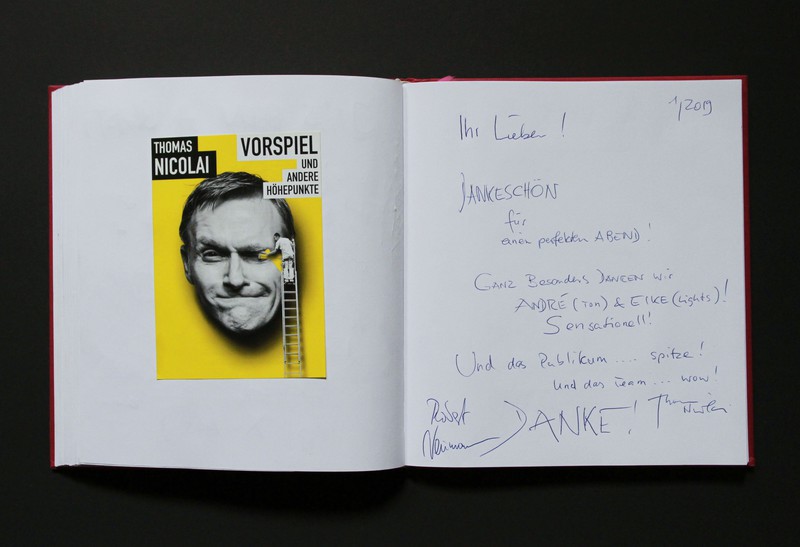 THOMAS
NICOLAI
VORSPIEL
UND
ANDERE
HÖHEPUNKTE
1/2019
Ihr Lieben!
DANKESCHÖN
für
einen perfekten ABEND!
GANZ Besonders DANKEN wir
ANDRÉ (Ton) & EIKE (Lights)!
Sensationell!
Und das Publikum .... spitze!
Und das Team ... wow!
DANKE!
Robert
Neumann
Thomas
Nicolai